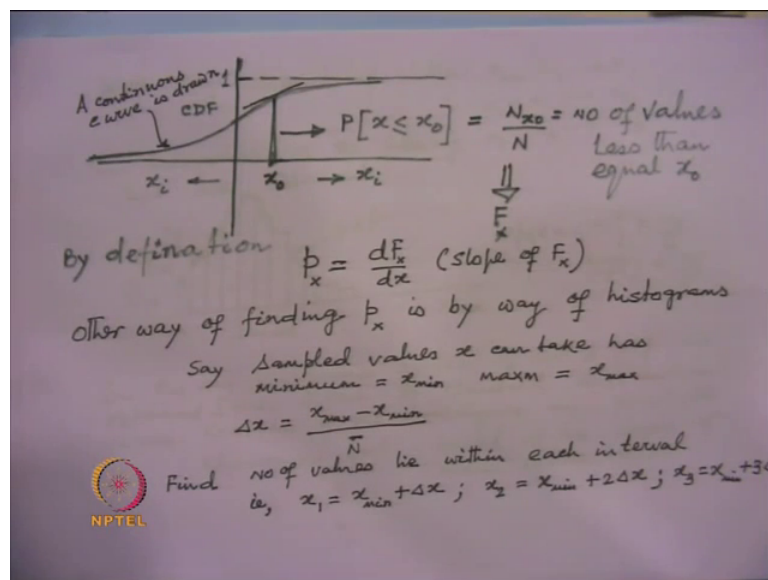 A continuous
curve is drawn
1
CDF
P[x ≤ x₀] = N_{x₀}/N = no of values
less than
equal x₀
x_i ← x₀ → x_i
F_x
By defination p_x = dF_x/dx (slope of F_x)
Other way of finding p_x is by way of histograms
Say sampled values x can take has
minimum = x_min maxm = x_max
Δx = (x_max − x_min)/N̄
Find no of values lie within each interval
ie, x₁ = x_min + Δx ; x₂ = x_min + 2Δx ; x₃ = x_min + 3Δ
NPTEL